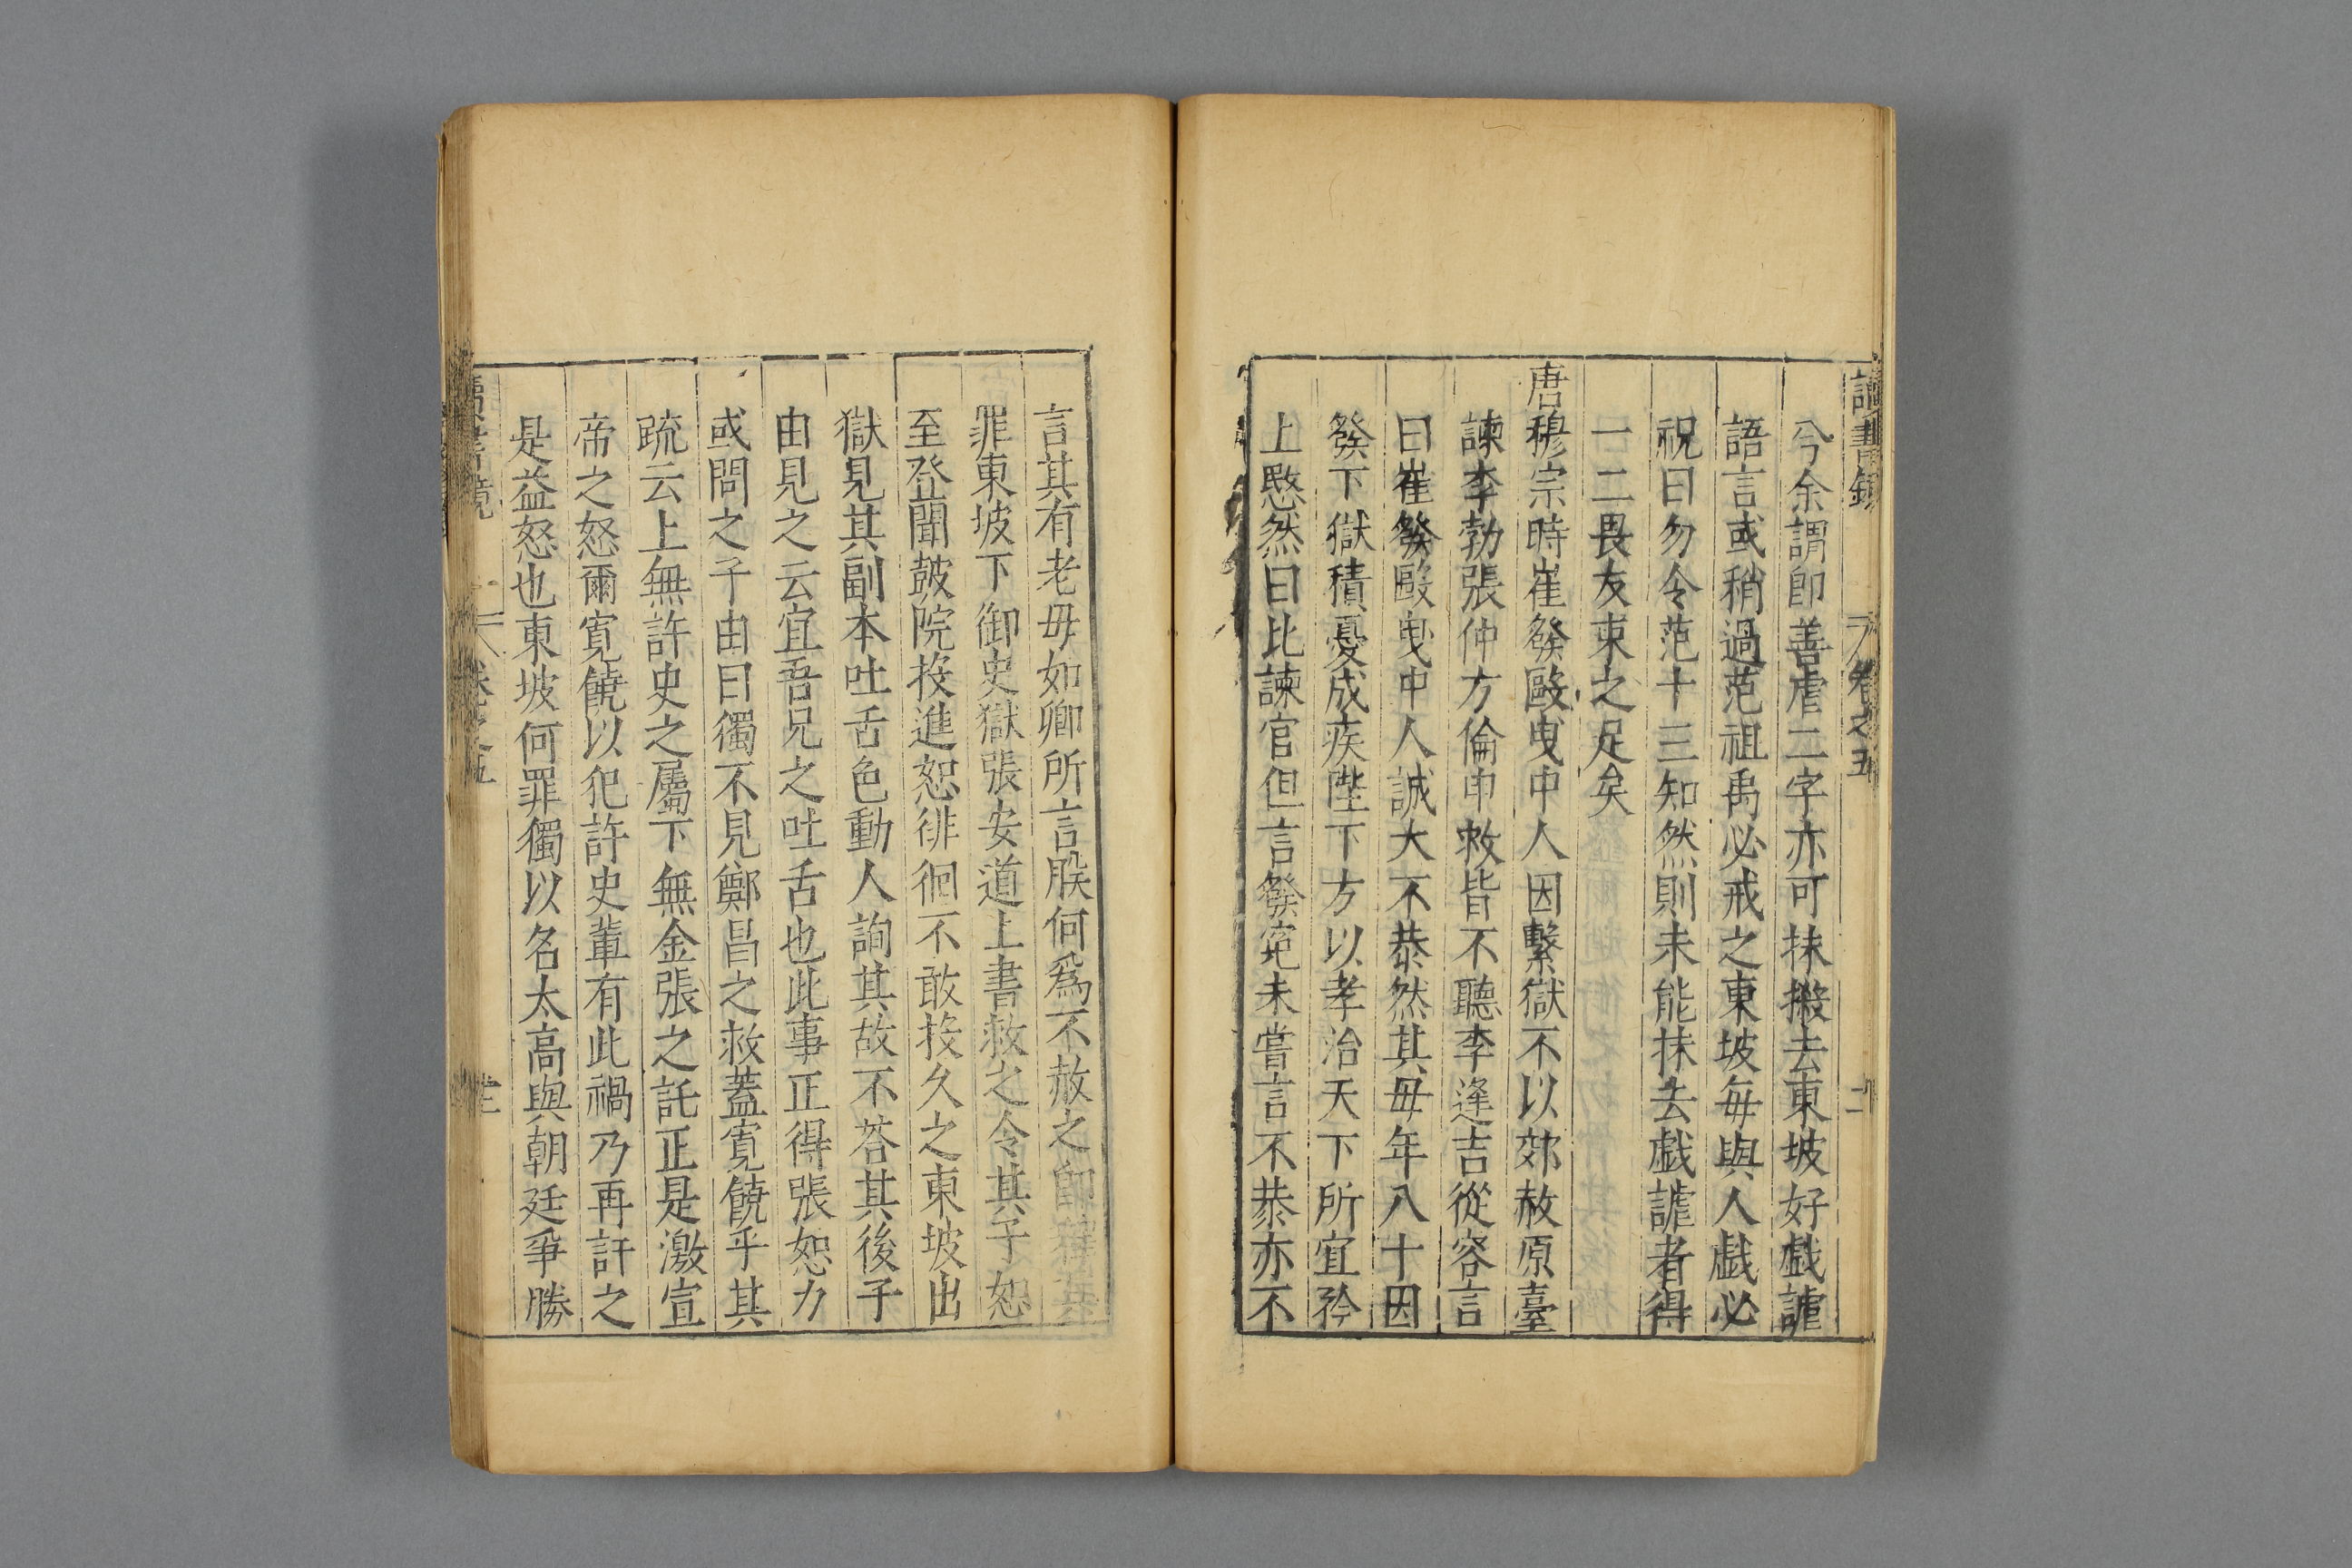 讀書鏡 卷之五
今余謂卽善虐二字亦可抹摋去東坡好戱謔
語言或稍過范祖禹必戒之東坡每與人戱必
祝曰勿令范十三知然則未能抹去戱謔者得
一二畏友束之足矣
唐穆宗時崔發毆曳中人因繫獄不以郊赦原臺
諫李勃張仲方倫申救皆不聽李逢吉從容言
曰崔發毆曳中人誠大不恭然其毋年八十因
發下獄積憂成疾陛下方以孝治天下所宜矜
上愍然曰比諫官但言發寃未嘗言不恭亦不
言其有老毋如卿所言朕何爲不赦之卽釋其
罪東坡下御史獄張安道上書救之令其子恕
至登聞皷院投進恕徘徊不敢投久之東坡出
獄見其副本吐舌色動人詢其故不荅其後子
由見之云宜吾兄之吐舌也此事正得張恕力
或問之子由曰獨不見鄭昌之救蓋寬饒乎其
疏云上無許史之屬下無金張之託正是激宣
帝之怒爾寬饒以犯許史輩有此禍乃再訐之
是益怒也東坡何罪獨以名太高與朝廷爭勝
讀書鏡 卷之五